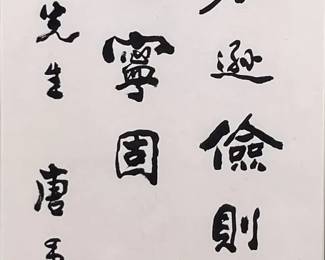 遜儉則
寧固
先生 唐